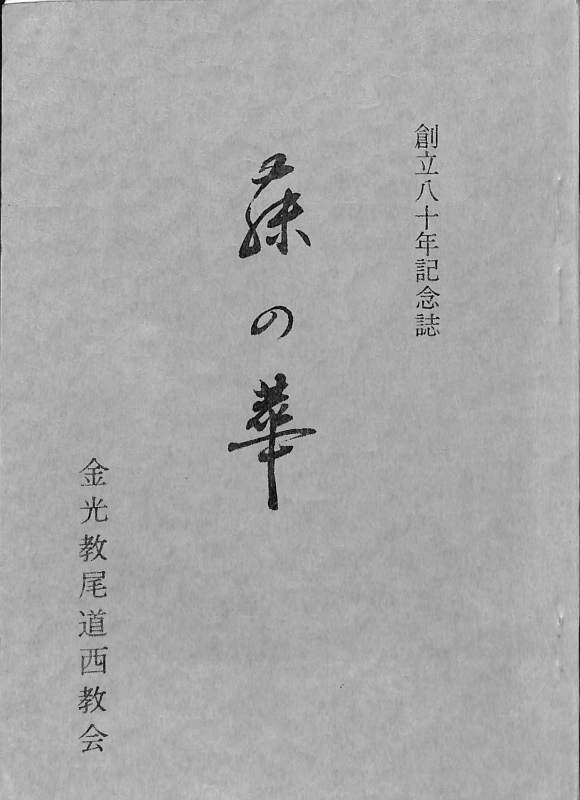 創立八十年記念誌
藤の華
金光教尾道西教会